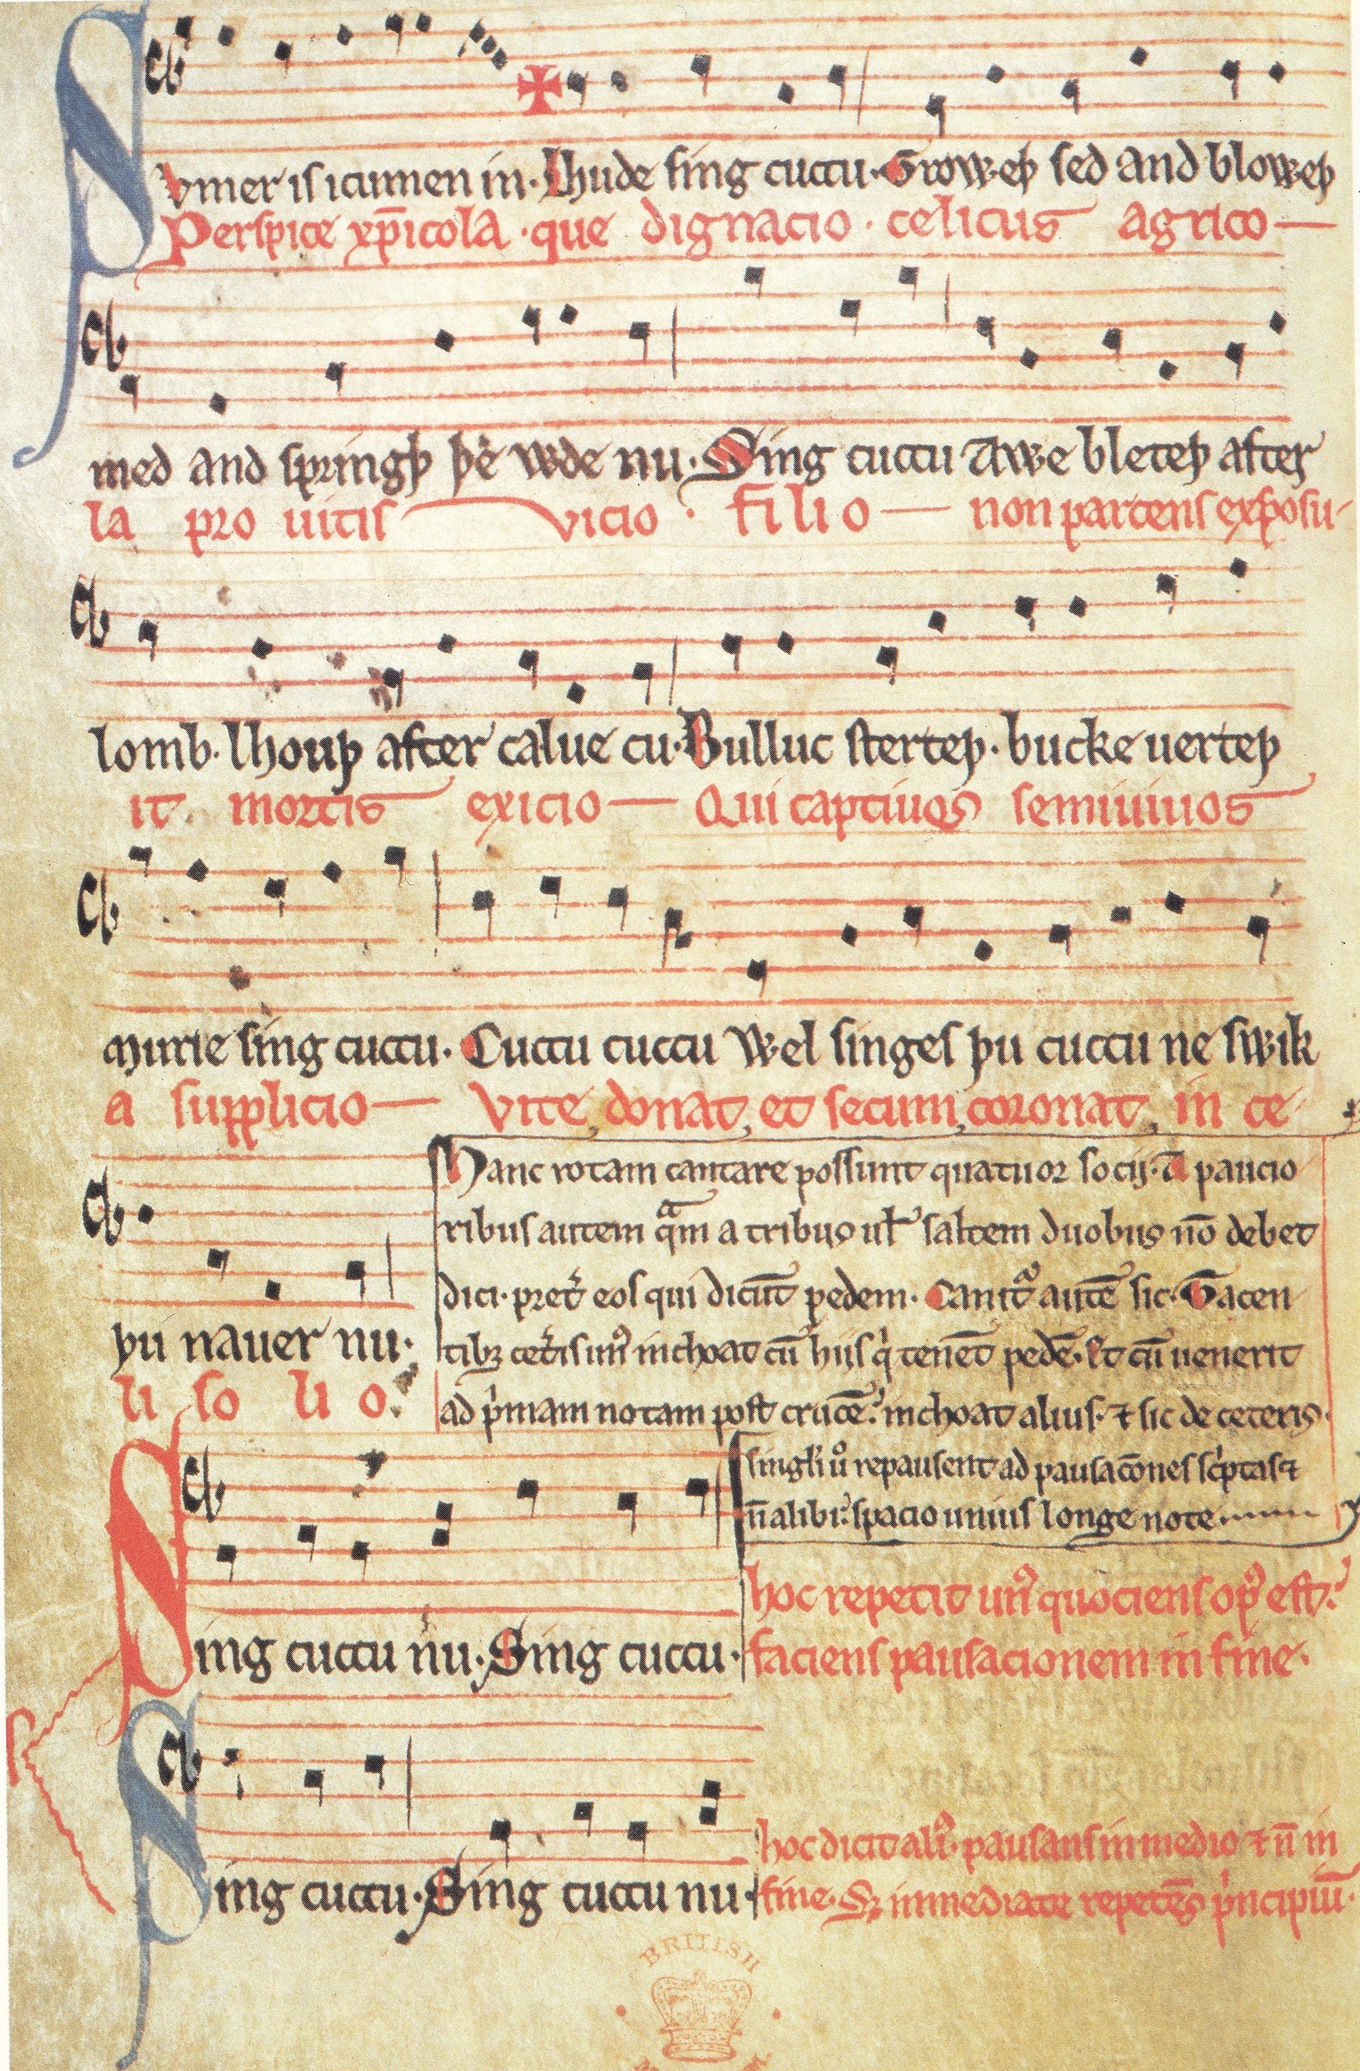 Sumer is icumen in. Lhude sing cuccu. Groweþ sed and bloweþ
Perspice xp̄icola . que dignacio . celicus agrico
med and springþ þe wde nu. Sing cuccu Awe bleteþ after
la pro uitis vicio . filio non parcens exposu
lomb. lhouþ after calue cu. Bulluc sterteþ. bucke uerteþ
it mortis exicio Qui captiuos semiuiuos
murie sing cuccu. Cuccu cuccu Wel singes þu cuccu ne swik
a supplicio vite donat et secum coronat in ce
þu nauer nu.
li so li o.
Hanc rotam cantare possunt quatuor socij. A paucio
ribus autem qͣm a tribus ul' saltem duobus nō debet
dici. pret̾ eos qui dicūt pedem. Canit᷑ autē sic. Tacen
tibȝ cet̾is un᷒ inchoat cū hiis q̍ tenēt pedē. Et cū uenerit
ad p̍mam notam post crucē. inchoat alius. ⁊ sic de ceteris.
singl'i ů repausent ad pausacōnes sc̍ptas ⁊
n̄ alibi. spacio unius longe note.
Sing cuccu nu. Sing cuccu.
hoc repetit un᷒ quociens op᷒ est.
faciens pausacionem in fine.
Sing cuccu. Sing cuccu nu.
hoc dicit ali᷒. pausans in medio ⁊ n̄ in
fine. Sȝ immediate repetēs p̍ncipiū.
BRITISH